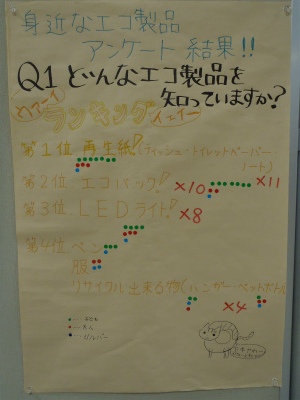 身近なエコ製品
アンケート 結果!!
Q1 どんなエコ製品を
知っていますか?
ランキング
第1位 再生紙!(ティッシュ・トイレットペーパー・
ノート)
第2位 エコバック! ×10 ×11
第3位 LEDライト! ×8
第4位 ペン
服
リサイクル出来る物(ハンガー・ペットボトル
×4